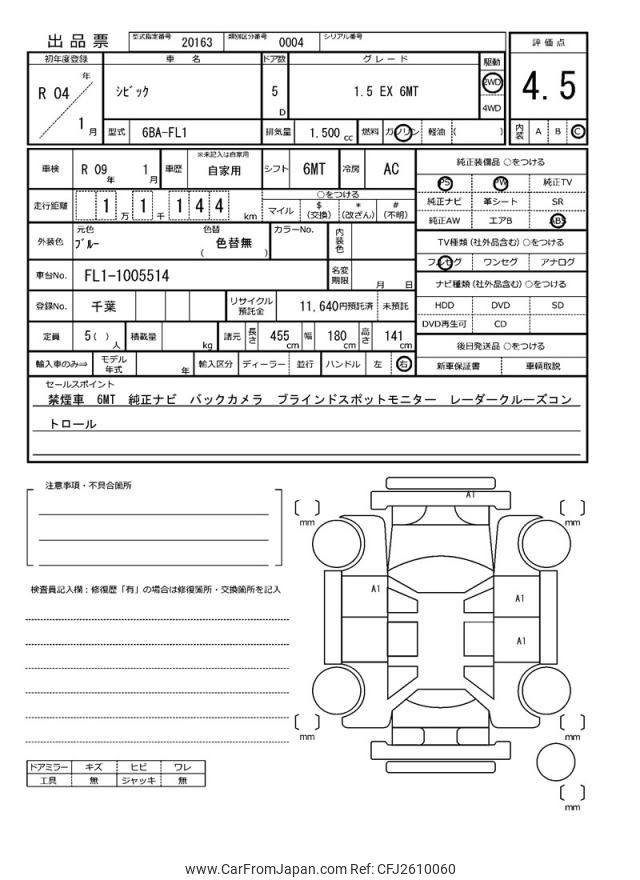 出品票 型式指定番号 20163 類別区分番号 0004 シリアル番号
評価点
4.5
内装 A B C
初年度登録 車名 ドア数 グレード 駆動
R 04 年 1 月 シビック 5 D 1.5 EX 6MT 2WD 4WD
型式 6BA-FL1 排気量 1.500 cc 燃料 ガソリン 軽油 ( )
車検 R 09 年 1 月 車歴 ※未記入は自家用 自家用 シフト 6MT 冷房 AC
走行距離 1 万 1 千 1 4 4 km ○をつける マイル $ (交換) * (改ざん) # (不明)
外装色 元色 ブルー 色替 ( 色替無 ) カラーNo. 内装色
車台No. FL1-1005514 名変期限 月 日
登録No. 千葉 リサイクル預託金 11,640円預託済 未預託
定員 5( ) 人 積載量 kg 諸元 長さ 455 cm 幅 180 cm 高さ 141 cm
輸入車のみ⇒ モデル年式 年 輸入区分 ディーラー 並行 ハンドル 左 右
純正装備品 ○をつける
PS PW 純正TV
純正ナビ 革シート SR
純正AW エアB ABS
TV種類 (社外品含む) ○をつける
フルセグ ワンセグ アナログ
ナビ種類 (社外品含む) ○をつける
HDD DVD SD
DVD再生可 CD
後日発送品 ○をつける
新車保証書 車輌取説
セールスポイント
禁煙車 6MT 純正ナビ バックカメラ ブラインドスポットモニター レーダークルーズコン
トロール
注意事項・不具合箇所
検査員記入欄：修復歴「有」の場合は修復箇所・交換箇所を記入
ドアミラー キズ ヒビ ワレ
工具 無 ジャッキ 無
A1
mm mm
A1 A1
A1
mm mm
mm
www.CarFromJapan.com Ref: CFJ2610060